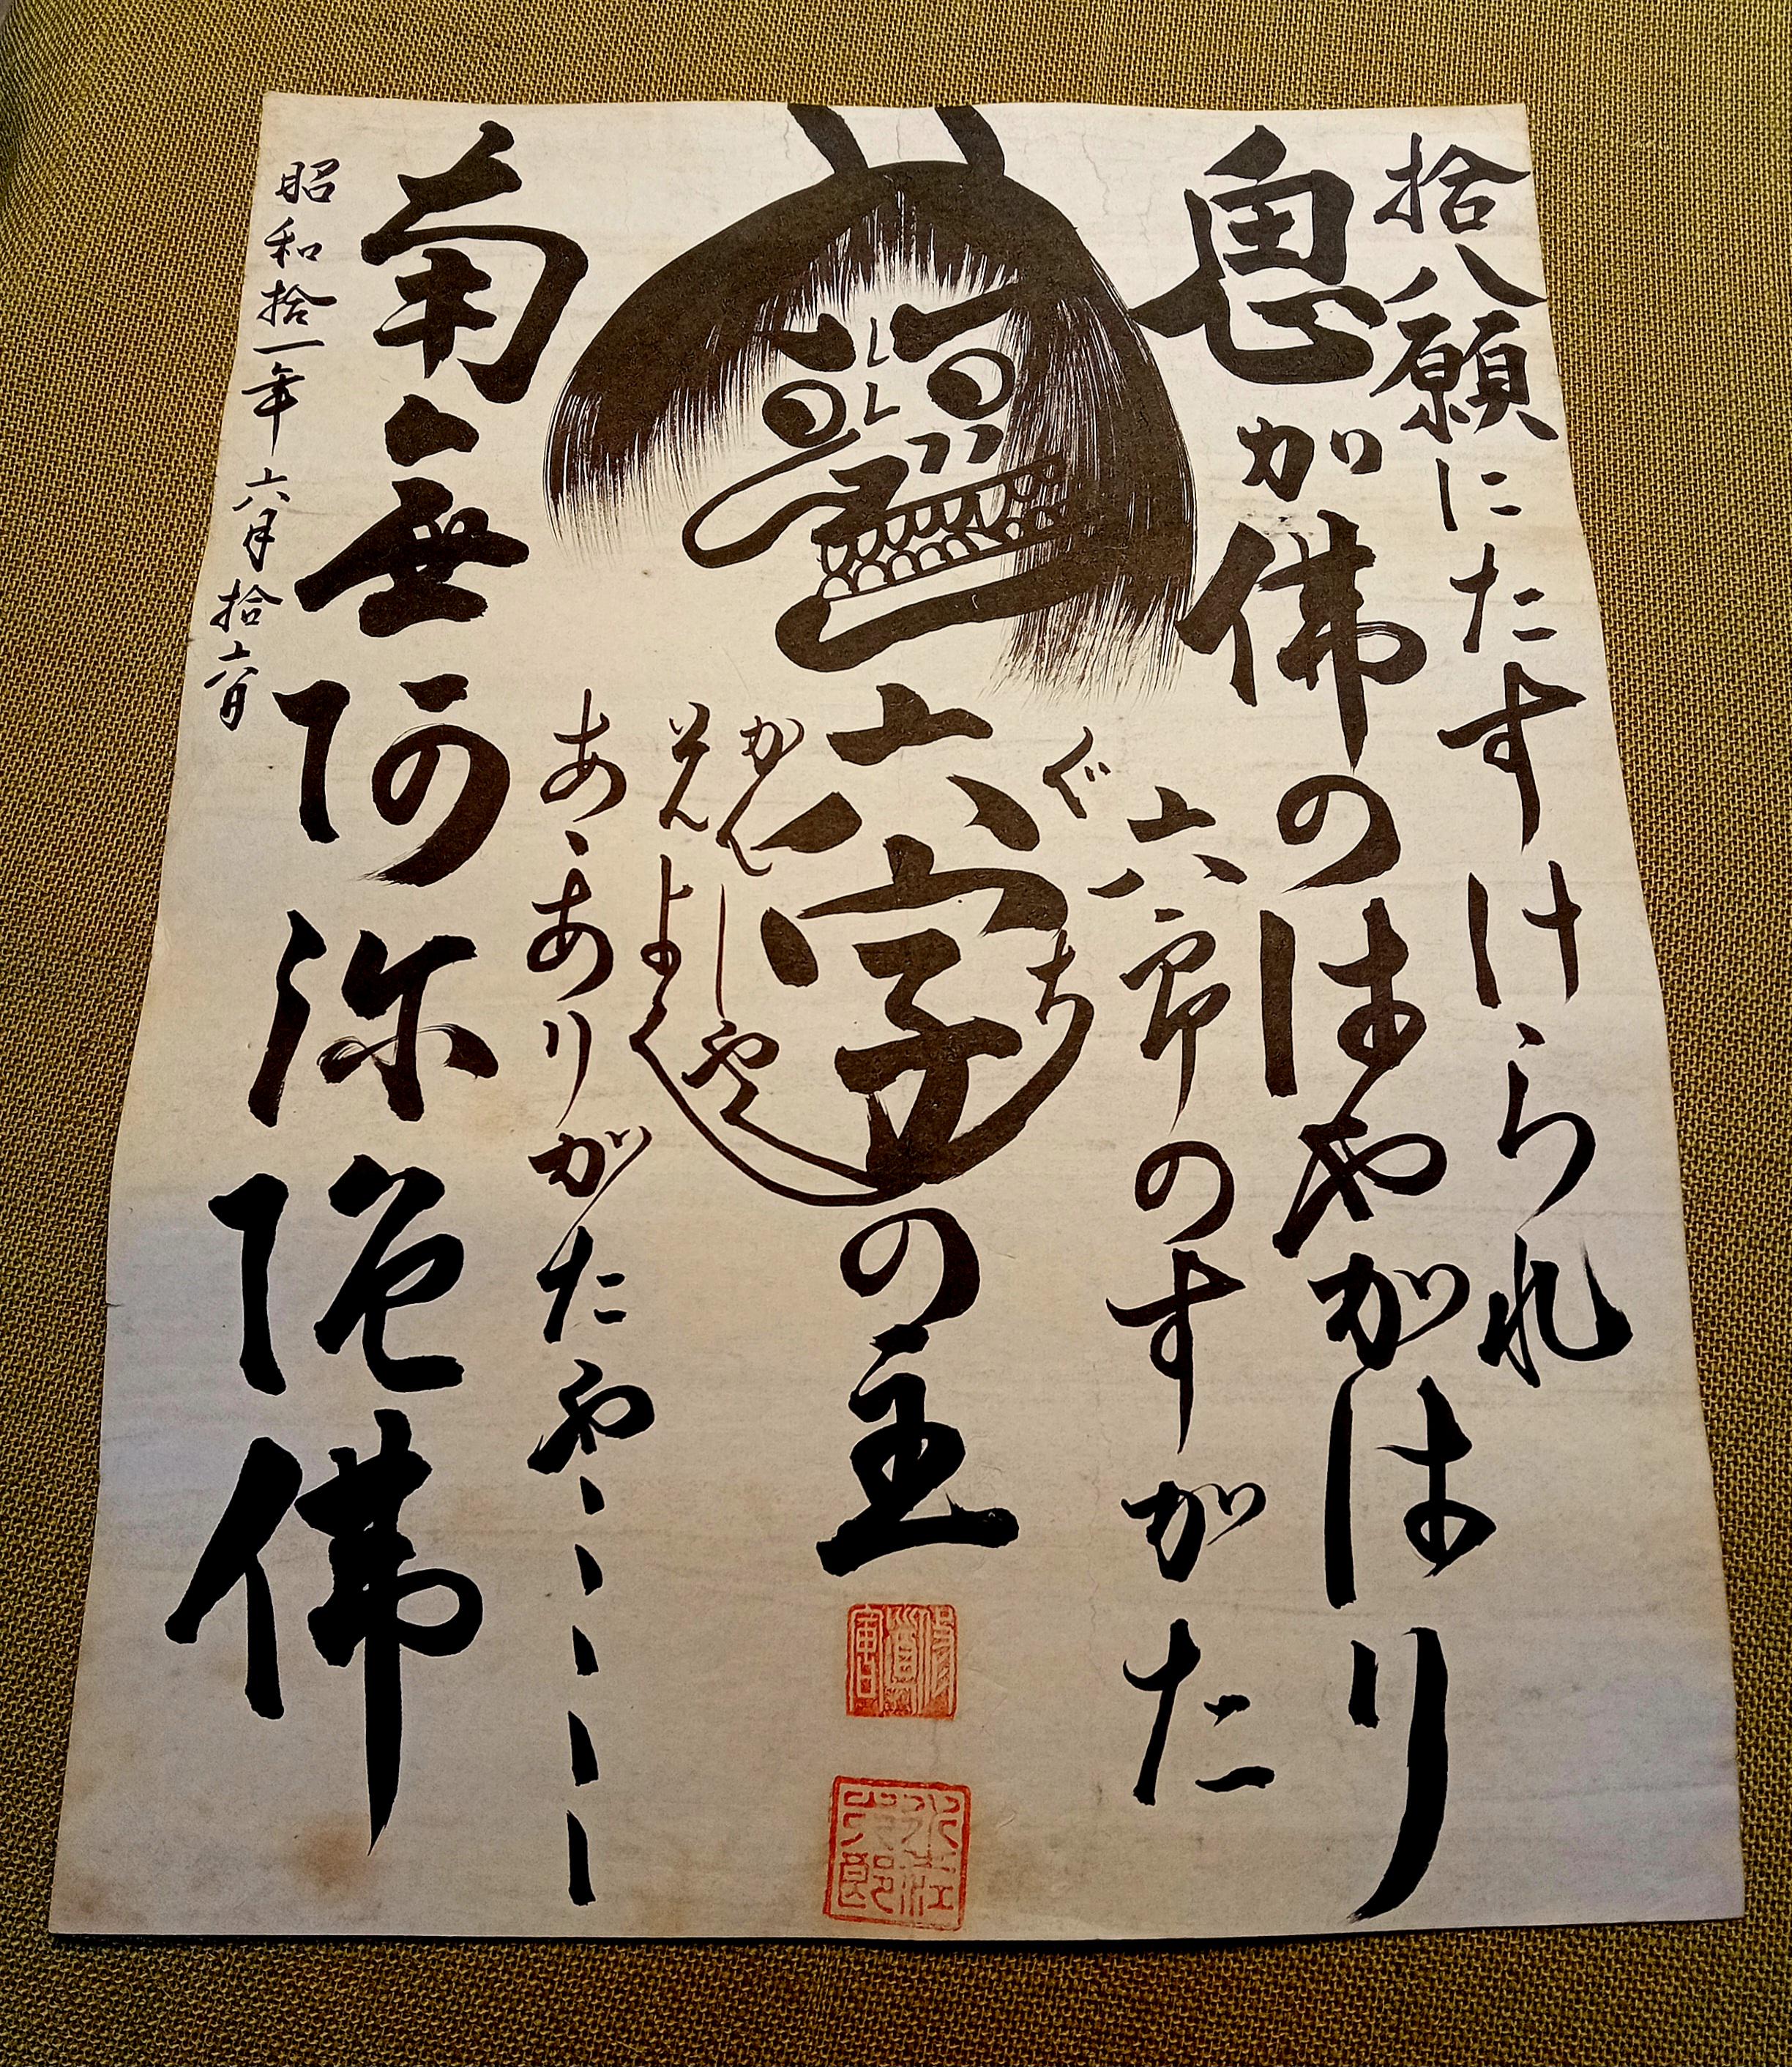 拾八願にたすけられ
鬼が佛のはやがはり
六郎のすがた
ぐち
六字の主
かんしや
そんよく
あゝありがたや
南無阿弥陀佛
昭和拾一年六月拾六日
水江六郎